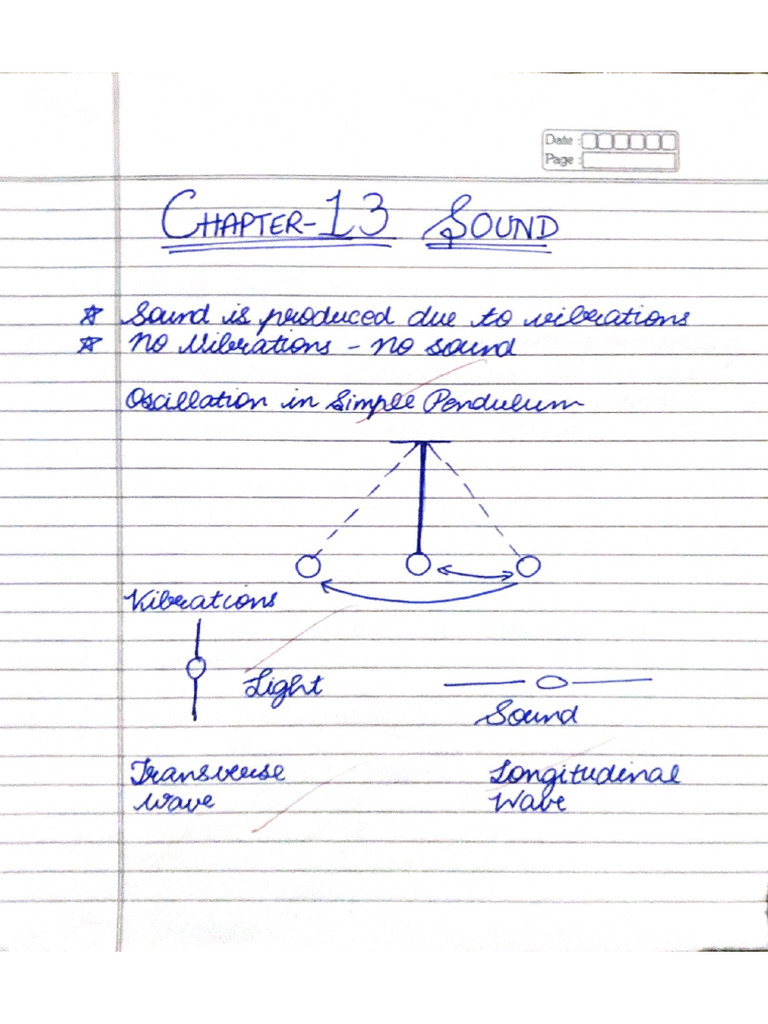 Date :
Page :
CHAPTER-13 SOUND
☆ Sound is produced due to vibrations
☆ No Vibrations - no sound
Oscillation in Simple Pendulum
Vibrations
Light
Sound
Transverse
Wave
Longitudinal
Wave